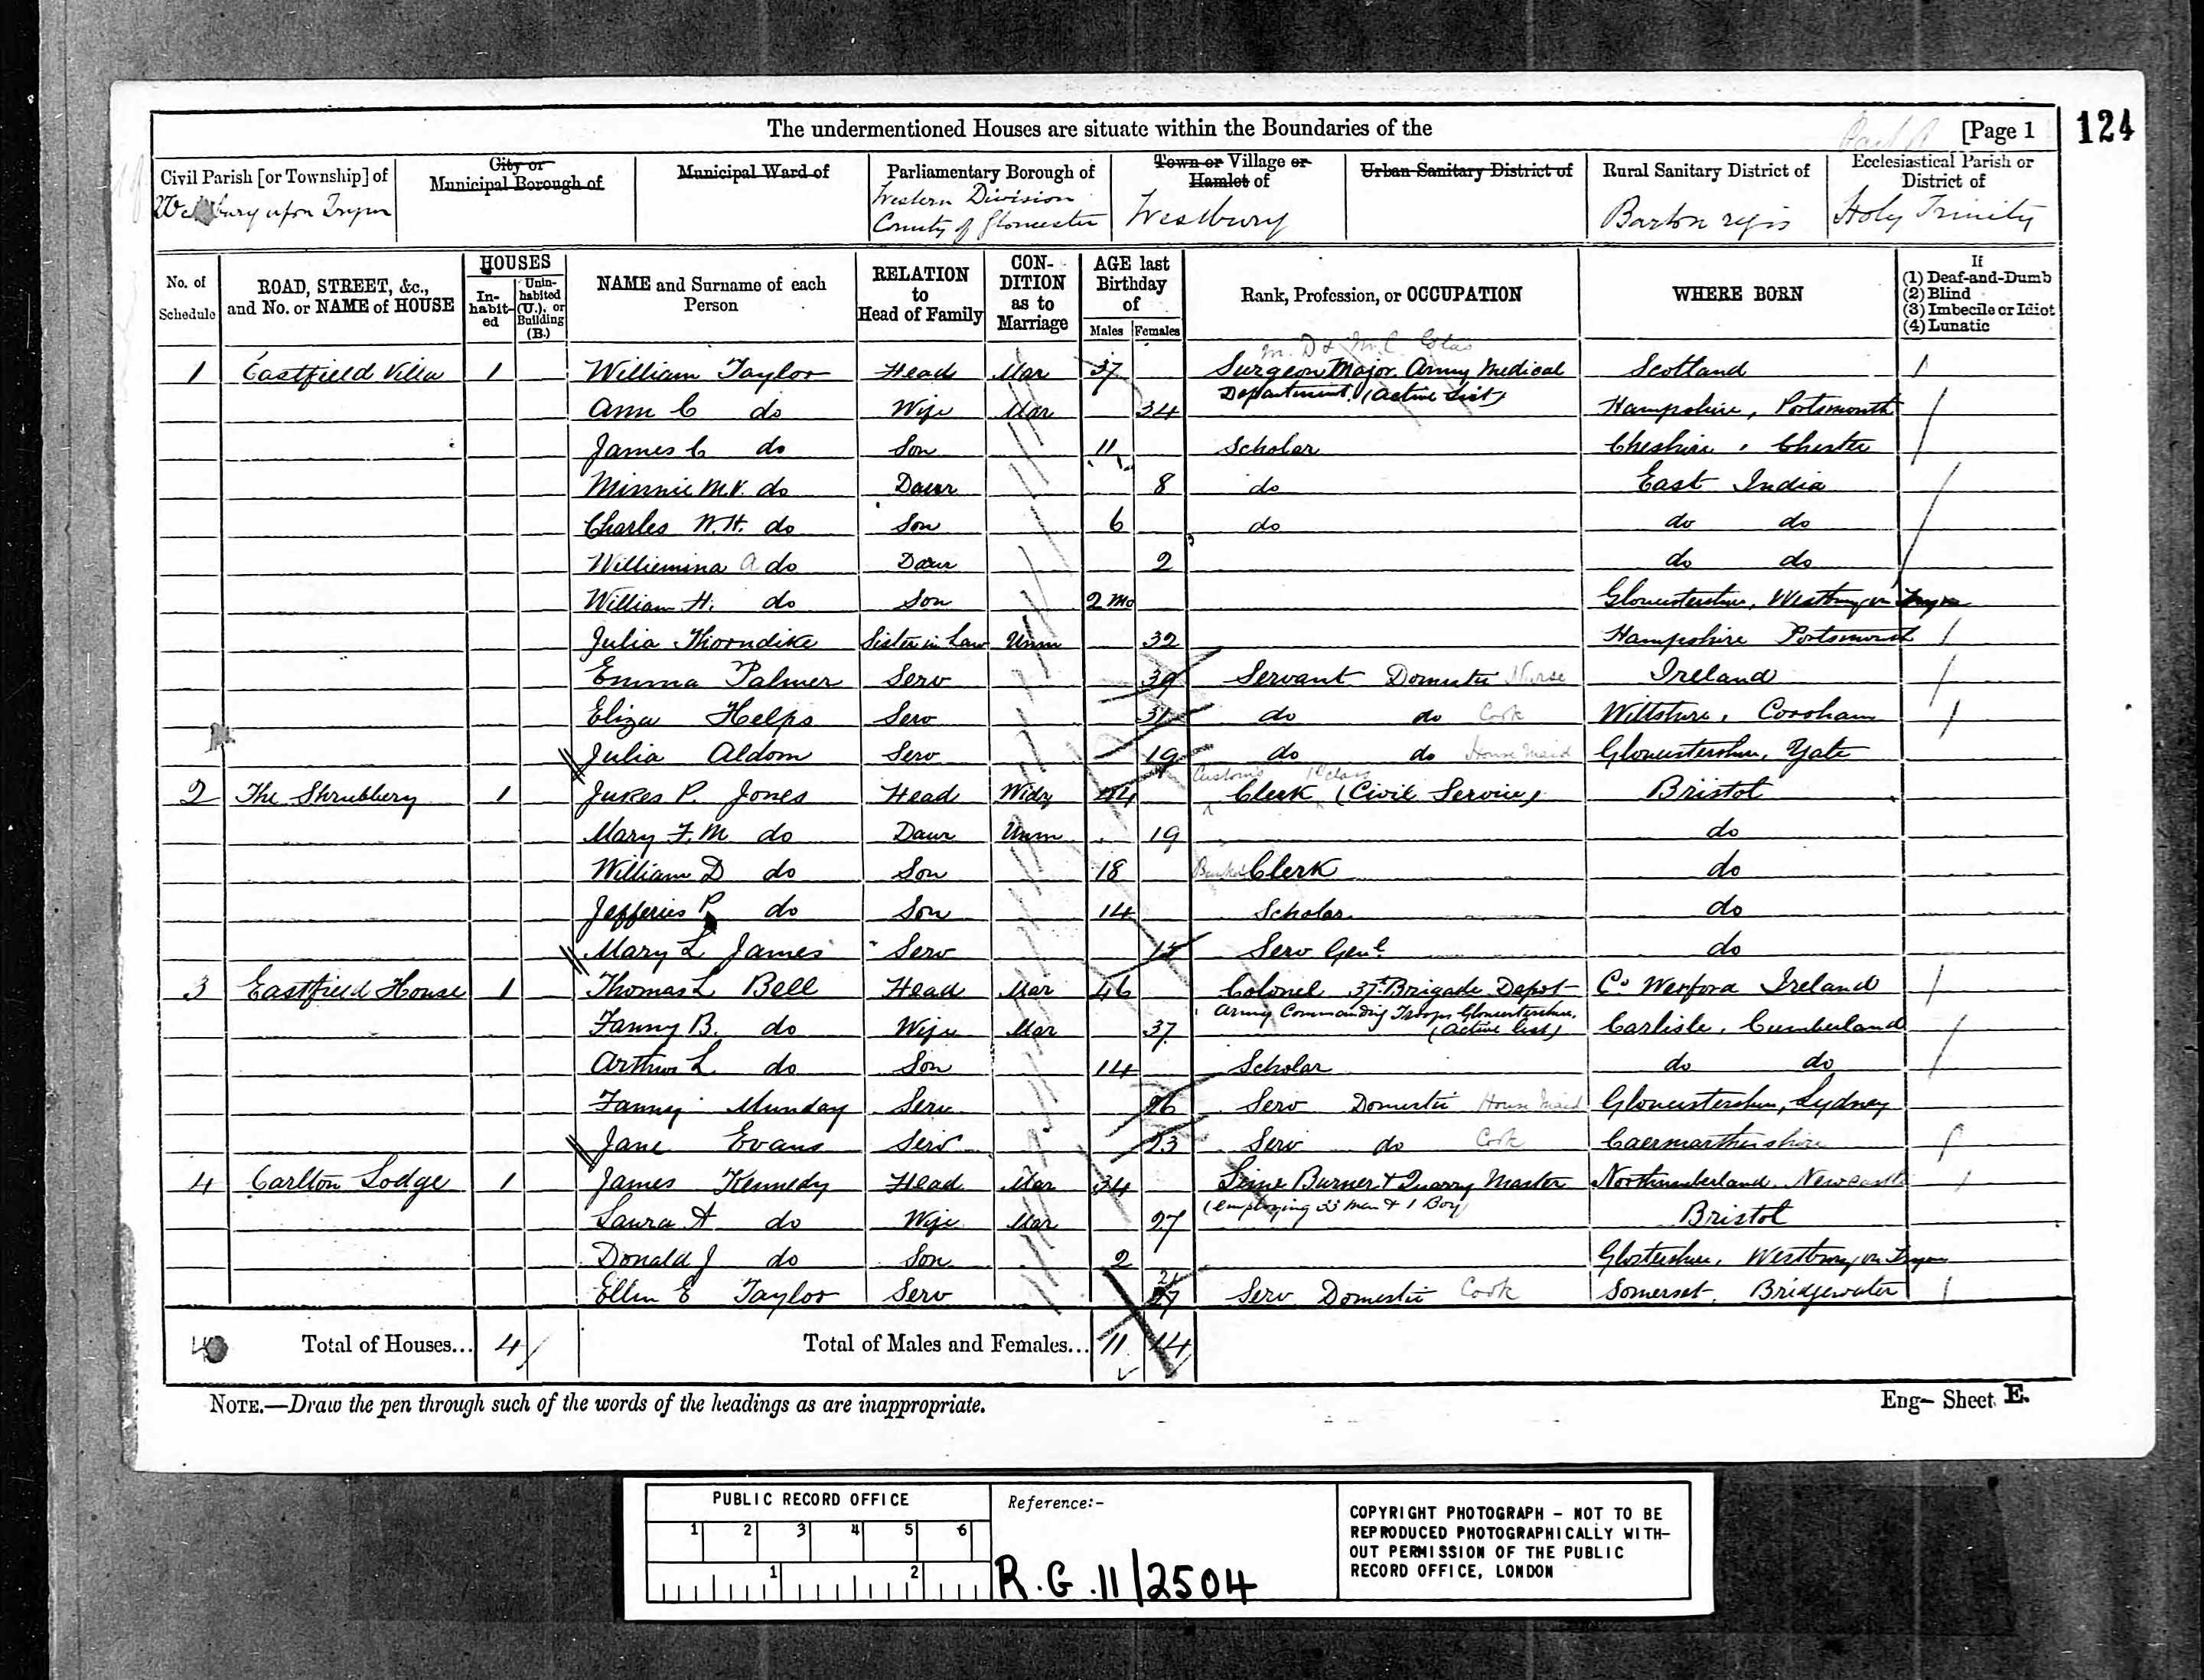 The undermentioned Houses are situate within the Boundaries of the [Page 1 124
Civil Parish [or Township] of City or Municipal Borough of Municipal Ward of Parliamentary Borough of Town or Village or Hamlet of Urban Sanitary District of Rural Sanitary District of Ecclesiastical Parish or District of
upon Trym Western Division County of Gloucester Westbury Barton regis Holy Trinity
No. of Schedule ROAD, STREET, &c., and No. or NAME of HOUSE HOUSES In-habit-ed Unin-habited (U.), or Building (B.) NAME and Surname of each Person RELATION to Head of Family CON-DITION as to Marriage AGE last Birthday of Males Females Rank, Profession, or OCCUPATION WHERE BORN If (1) Deaf-and-Dumb (2) Blind (3) Imbecile or Idiot (4) Lunatic
1 Eastfield Villa 1 William Taylor Head Mar 37 Surgeon Major Army Medical Scotland
Department (Active List)
Ann C do Wife Mar 34 Hampshire, Portsmouth
James C do Son 11 Scholar Cheshire, Chester
Minnie M.V. do Daur 8 do East India
Charles W.H. do Son 6 do do do
Williemina A do Daur 2 do do
William H. do Son 2 Mo Gloucestershire, Westbury on Trym
Julia Thorndike Sister in Law Unm 32 Hampshire Portsmouth
Emma Palmer Serv 39 Servant Domestic Nurse Ireland
Eliza Helps Serv 31 do do Cook Wiltshire, Corsham
Julia Aldom Serv 19 do do House Maid Gloucestershire, Yate
Customs 1st class
2 The Shrubbery 1 Jukes P. Jones Head Widr Clerk (Civil Service) Bristol
Mary F.M do Daur Unm 19 do
William D do Son 18 Clerk do
Jefferies P do Son 14 Scholar do
Mary L James Serv Serv Genl do
3 Eastfield House 1 Thomas L Bell Head Mar 46 Colonel 37th Brigade Depot Co Wexford Ireland
Army Commanding Troops Gloucestershire,
Fanny B. do Wife Mar 37 (Active List) Carlisle, Cumberland
Arthur L do Son 14 Scholar do do
Fanny Munday Serv 26 Serv Domestic House Maid Gloucestershire, Lydney
Jane Evans Serv 23 Serv do Cook Caermarthenshire
4 Carlton Lodge 1 James Kennedy Head Mar 34 Lime Burner & Quarry Master Northumberland, Newcastle
(employing 33 Men & 1 Boy)
Laura A do Wife Mar 27 Bristol
Donald J do Son 2 Glostershire, Westbury on Trym
Ellen E Taylor Serv 27 Serv Domestic Cook Somerset, Bridgewater
4 Total of Houses... 4 Total of Males and Females... 11 14
NOTE.—Draw the pen through such of the words of the headings as are inappropriate. Eng— Sheet E.
PUBLIC RECORD OFFICE
1 2 3 4 5 6
1 2
Reference:-
R.G. 11/2504
COPYRIGHT PHOTOGRAPH - NOT TO BE
REPRODUCED PHOTOGRAPHICALLY WITH-
OUT PERMISSION OF THE PUBLIC
RECORD OFFICE, LONDON